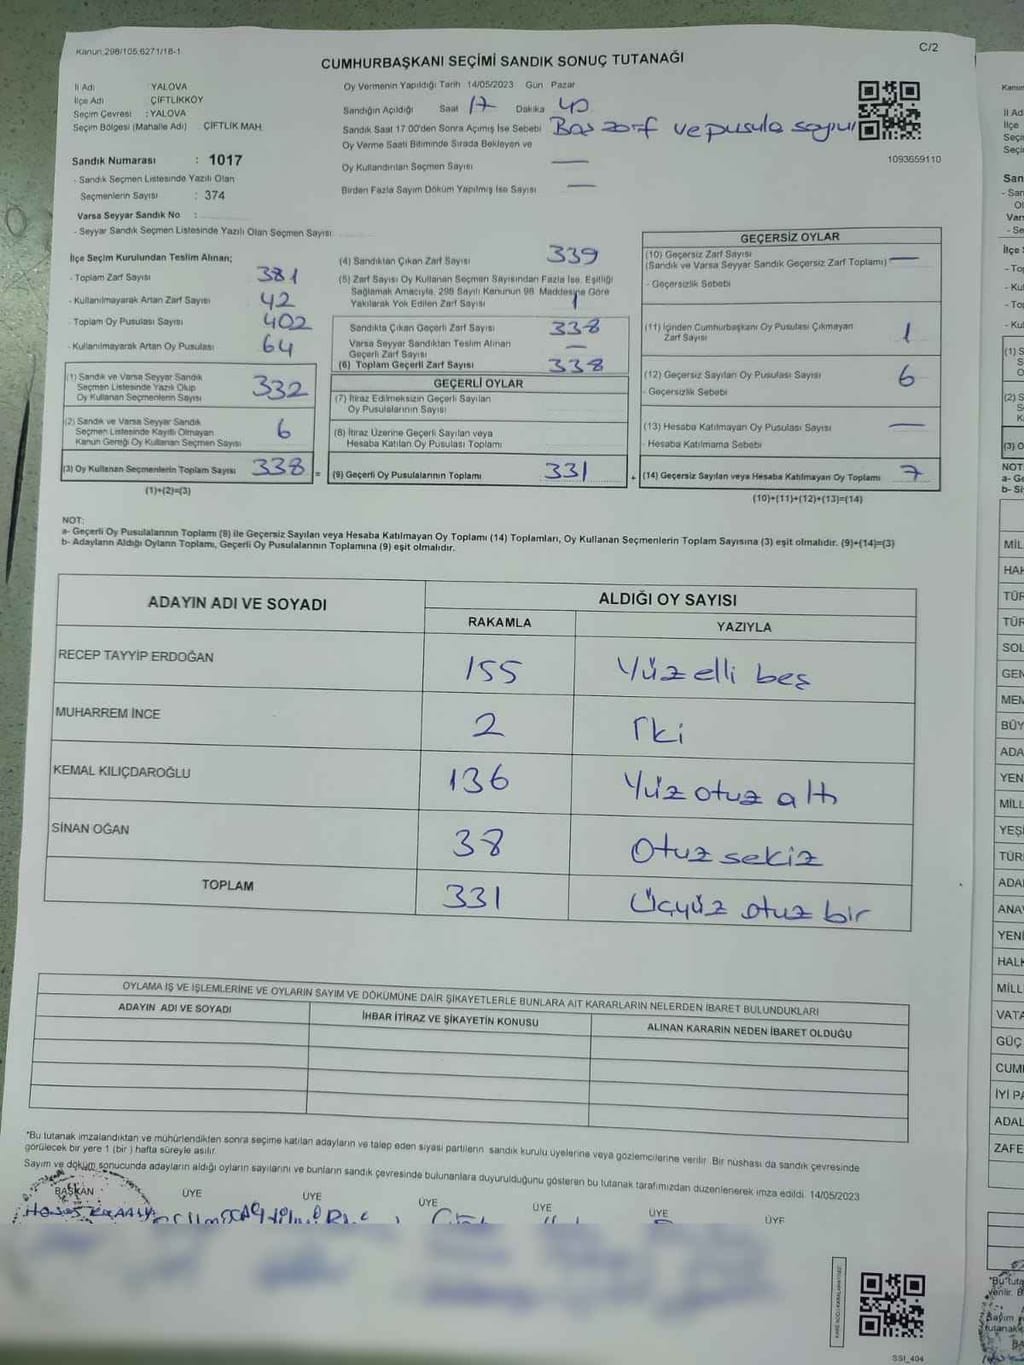 Kanun:298/105;6271/18-1
C/2
CUMHURBAŞKANI SEÇİMİ SANDIK SONUÇ TUTANAĞI
İl Adı YALOVA
İlçe Adı ÇİFTLİKKÖY
Seçim Çevresi : YALOVA
Seçim Bölgesi (Mahalle Adı) ÇİFTLİK MAH.
Sandık Numarası : 1017
- Sandık Seçmen Listesinde Yazılı Olan
Seçmenlerin Sayısı : 374
Varsa Seyyar Sandık No :
- Seyyar Sandık Seçmen Listesinde Yazılı Olan Seçmen Sayısı
Oy Vermenin Yapıldığı Tarih 14/05/2023 Gün Pazar
Sandığın Açıldığı Saat 17 Dakika 40
Sandık Saat 17.00'den Sonra Açımış İse Sebebi Boş zarf ve pusula sayımı
Oy Verme Saati Bitiminde Sırada Bekleyen ve
Oy Kullandırılan Seçmen Sayısı —
Birden Fazla Sayım Döküm Yapılmış İse Sayısı —
1093659110
İlçe Seçim Kurulundan Teslim Alınan;
- Toplam Zarf Sayısı 381
- Kullanılmayarak Artan Zarf Sayısı 42
- Toplam Oy Pusulası Sayısı 402
- Kullanılmayarak Artan Oy Pusulası 64
(1) Sandık ve Varsa Seyyar Sandık
Seçmen Listesinde Yazılı Olup
Oy Kullanan Seçmenlerin Sayısı 332
(2) Sandık ve Varsa Seyyar Sandık
Seçmen Listesinde Kayıtlı Olmayan
Kanun Gereği Oy Kullanan Seçmen Sayısı 6
(3) Oy Kullanan Seçmenlerin Toplam Sayısı 338 =
(1)+(2)=(3)
(4) Sandıktan Çıkan Zarf Sayısı 339
(5) Zarf Sayısı Oy Kullanan Seçmen Sayısından Fazla İse, Eşitliği
Sağlamak Amacıyla, 298 Sayılı Kanunun 98. Maddesine Göre
Yakılarak Yok Edilen Zarf Sayısı 1
Sandıkta Çıkan Geçerli Zarf Sayısı 338
Varsa Seyyar Sandıktan Teslim Alınan
Geçerli Zarf Sayısı —
(6) Toplam Geçerli Zarf Sayısı 338
GEÇERLİ OYLAR
(7) İtiraz Edilmeksizin Geçerli Sayılan
Oy Pusulalarının Sayısı
(8) İtiraz Üzerine Geçerli Sayılan veya
Hesaba Katılan Oy Pusulası Toplamı
(9) Geçerli Oy Pusulalarının Toplamı 331 +
GEÇERSİZ OYLAR
(10) Geçersiz Zarf Sayısı
(Sandık ve Varsa Seyyar Sandık Geçersiz Zarf Toplamı) —
- Geçersizlik Sebebi
(11) İçinden Cumhurbaşkanı Oy Pusulası Çıkmayan
Zarf Sayısı 1
(12) Geçersiz Sayılan Oy Pusulası Sayısı 6
- Geçersizlik Sebebi
(13) Hesaba Katılmayan Oy Pusulası Sayısı —
- Hesaba Katılmama Sebebi
(14) Geçersiz Sayılan veya Hesaba Katılmayan Oy Toplamı 7
(10)+(11)+(12)+(13)=(14)
NOT:
a- Geçerli Oy Pusulalarının Toplamı (8) ile Geçersiz Sayılan veya Hesaba Katılmayan Oy Toplamı (14) Toplamları, Oy Kullanan Seçmenlerin Toplam Sayısına (3) eşit olmalıdır. (9)+(14)=(3)
b- Adayların Aldığı Oyların Toplamı, Geçerli Oy Pusulalarının Toplamına (9) eşit olmalıdır.
ADAYIN ADI VE SOYADI
ALDIĞI OY SAYISI
RAKAMLA YAZIYLA
RECEP TAYYİP ERDOĞAN 155 Yüz elli beş
MUHARREM İNCE 2 İki
KEMAL KILIÇDAROĞLU 136 Yüz otuz altı
SİNAN OĞAN 38 Otuz sekiz
TOPLAM 331 Üçyüz otuz bir
OYLAMA İŞ VE İŞLEMLERİNE VE OYLARIN SAYIM VE DÖKÜMÜNE DAİR ŞİKAYETLERLE BUNLARA AİT KARARLARIN NELERDEN İBARET BULUNDUKLARI
ADAYIN ADI VE SOYADI İHBAR İTİRAZ VE ŞİKAYETİN KONUSU ALINAN KARARIN NEDEN İBARET OLDUĞU
"Bu tutanak imzalandıktan ve mühürlendikten sonra seçime katılan adayların ve talep eden siyasi partilerin sandık kurulu üyelerine veya gözlemcilerine verilir. Bir nüshası da sandık çevresinde
görülecek bir yere 1 (bir) hafta süreyle asılır.
Sayım ve döküm sonucunda adayların aldığı oyların sayılarını ve bunların sandık çevresinde bulunanlara duyurulduğunu gösteren bu tutanak tarafımızdan düzenlenerek imza edildi. 14/05/2023
BAŞKAN ÜYE ÜYE ÜYE ÜYE ÜYE ÜYE
SSI_404